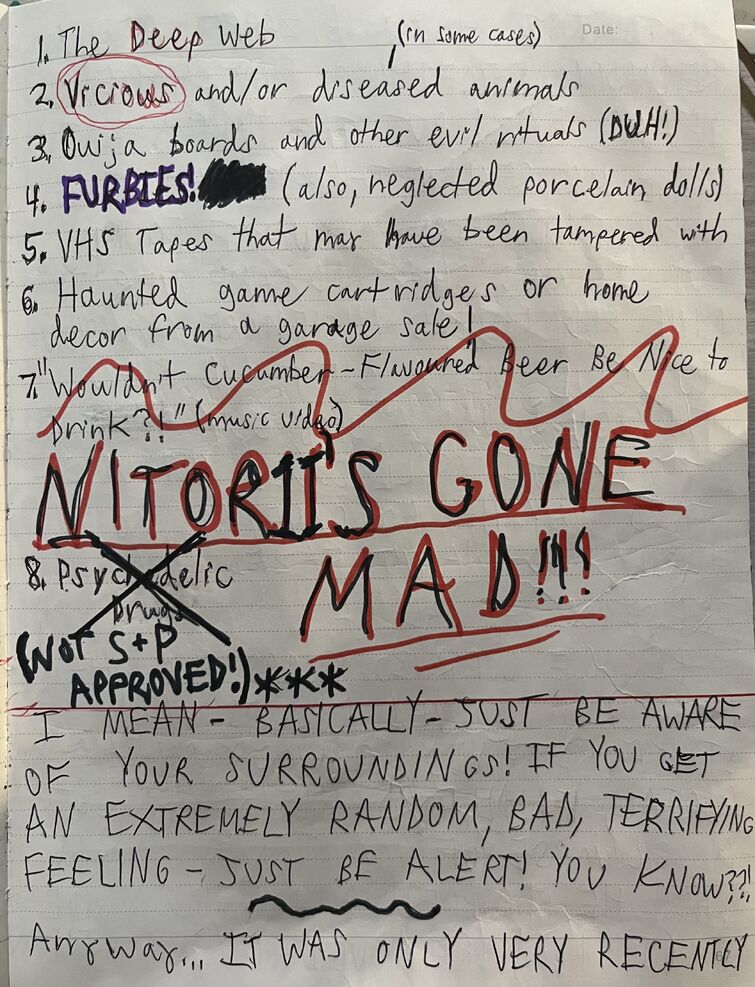 Date:
1. The Deep Web (in some cases)
2. Vicious and/or diseased animals
3. Ouija boards and other evil rituals (DUH!)
4. FURBIES! (also, neglected porcelain dolls)
5. VHS Tapes that may have been tampered with
6. Haunted game cartridges or home
decor from a garage sale!
7. "Wouldn't Cucumber-Flavoured Beer Be Nice to
Drink?!" (music video)
NITORII'S GONE
MAD!!!
8. Psychedelic
Drugs
(NOT S+P
APPROVED!)***
I MEAN - BASICALLY - JUST BE AWARE
OF YOUR SURROUNDINGS! IF YOU GET
AN EXTREMELY RANDOM, BAD, TERRIFYING
FEELING - JUST BE ALERT! YOU KNOW??!
Anyway... IT WAS ONLY VERY RECENTLY